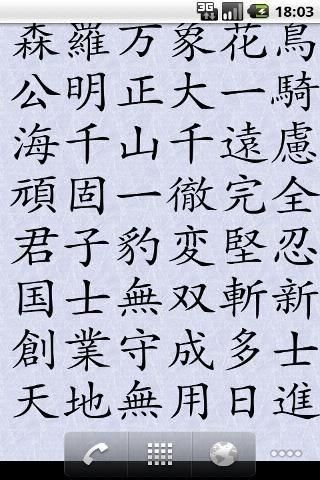 3G 18:03
森羅万象花鳥
公明正大一騎
海千山千遠慮
頑固一徹完全
君子豹変堅忍
国士無双斬新
創業守成多士
天地無用日進